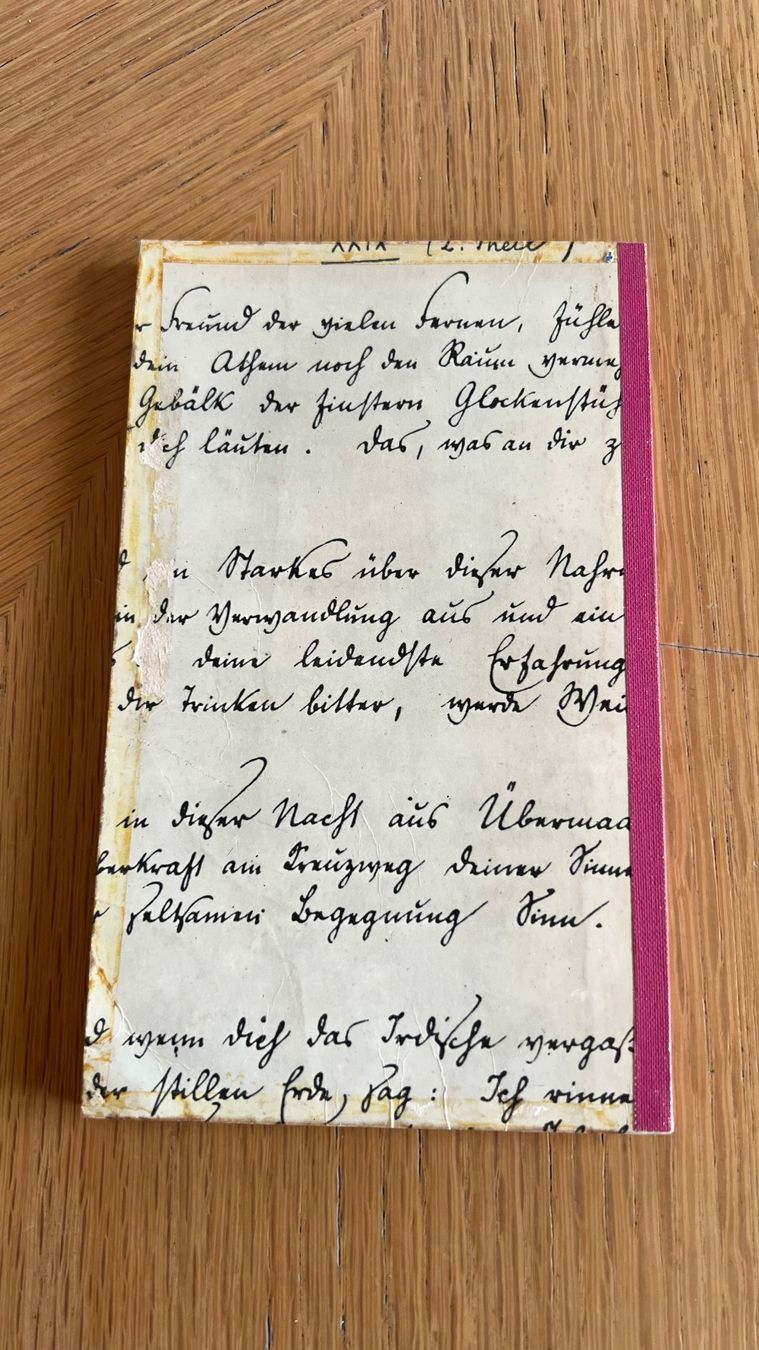 XXIX (2. Theil)
r Freund der vielen Fernen, fühle
dein Athem noch den Raum verme
Gebälk der finstern Glockenstüh
dich läuten. Das, was an dir z
d n Starkes über dieser Nahru
in der Verwandlung aus und ein
s deine leidendste Erfahrung
dir Trinken bitter, werde Wei
in dieser Nacht aus Übermaa
berkraft am Kreuzweg deiner Sinne
r seltsamen Begegnung Sinn.
d wenn dich das Irdische vergaß
der stillen Erde, sag: Ich rinne